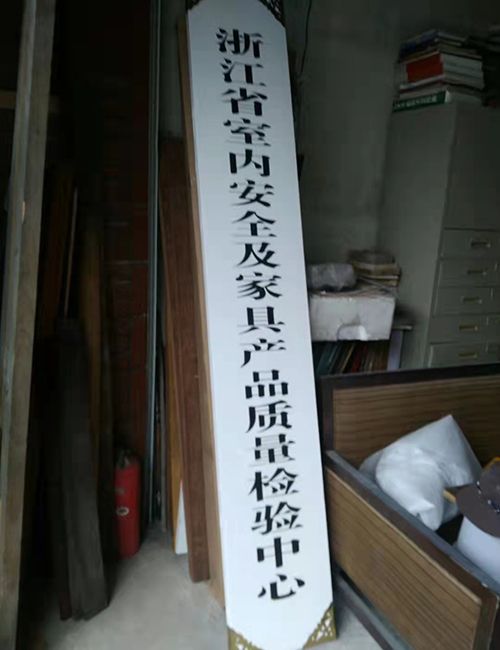 浙江省室内安全及家具产品质量检验中心